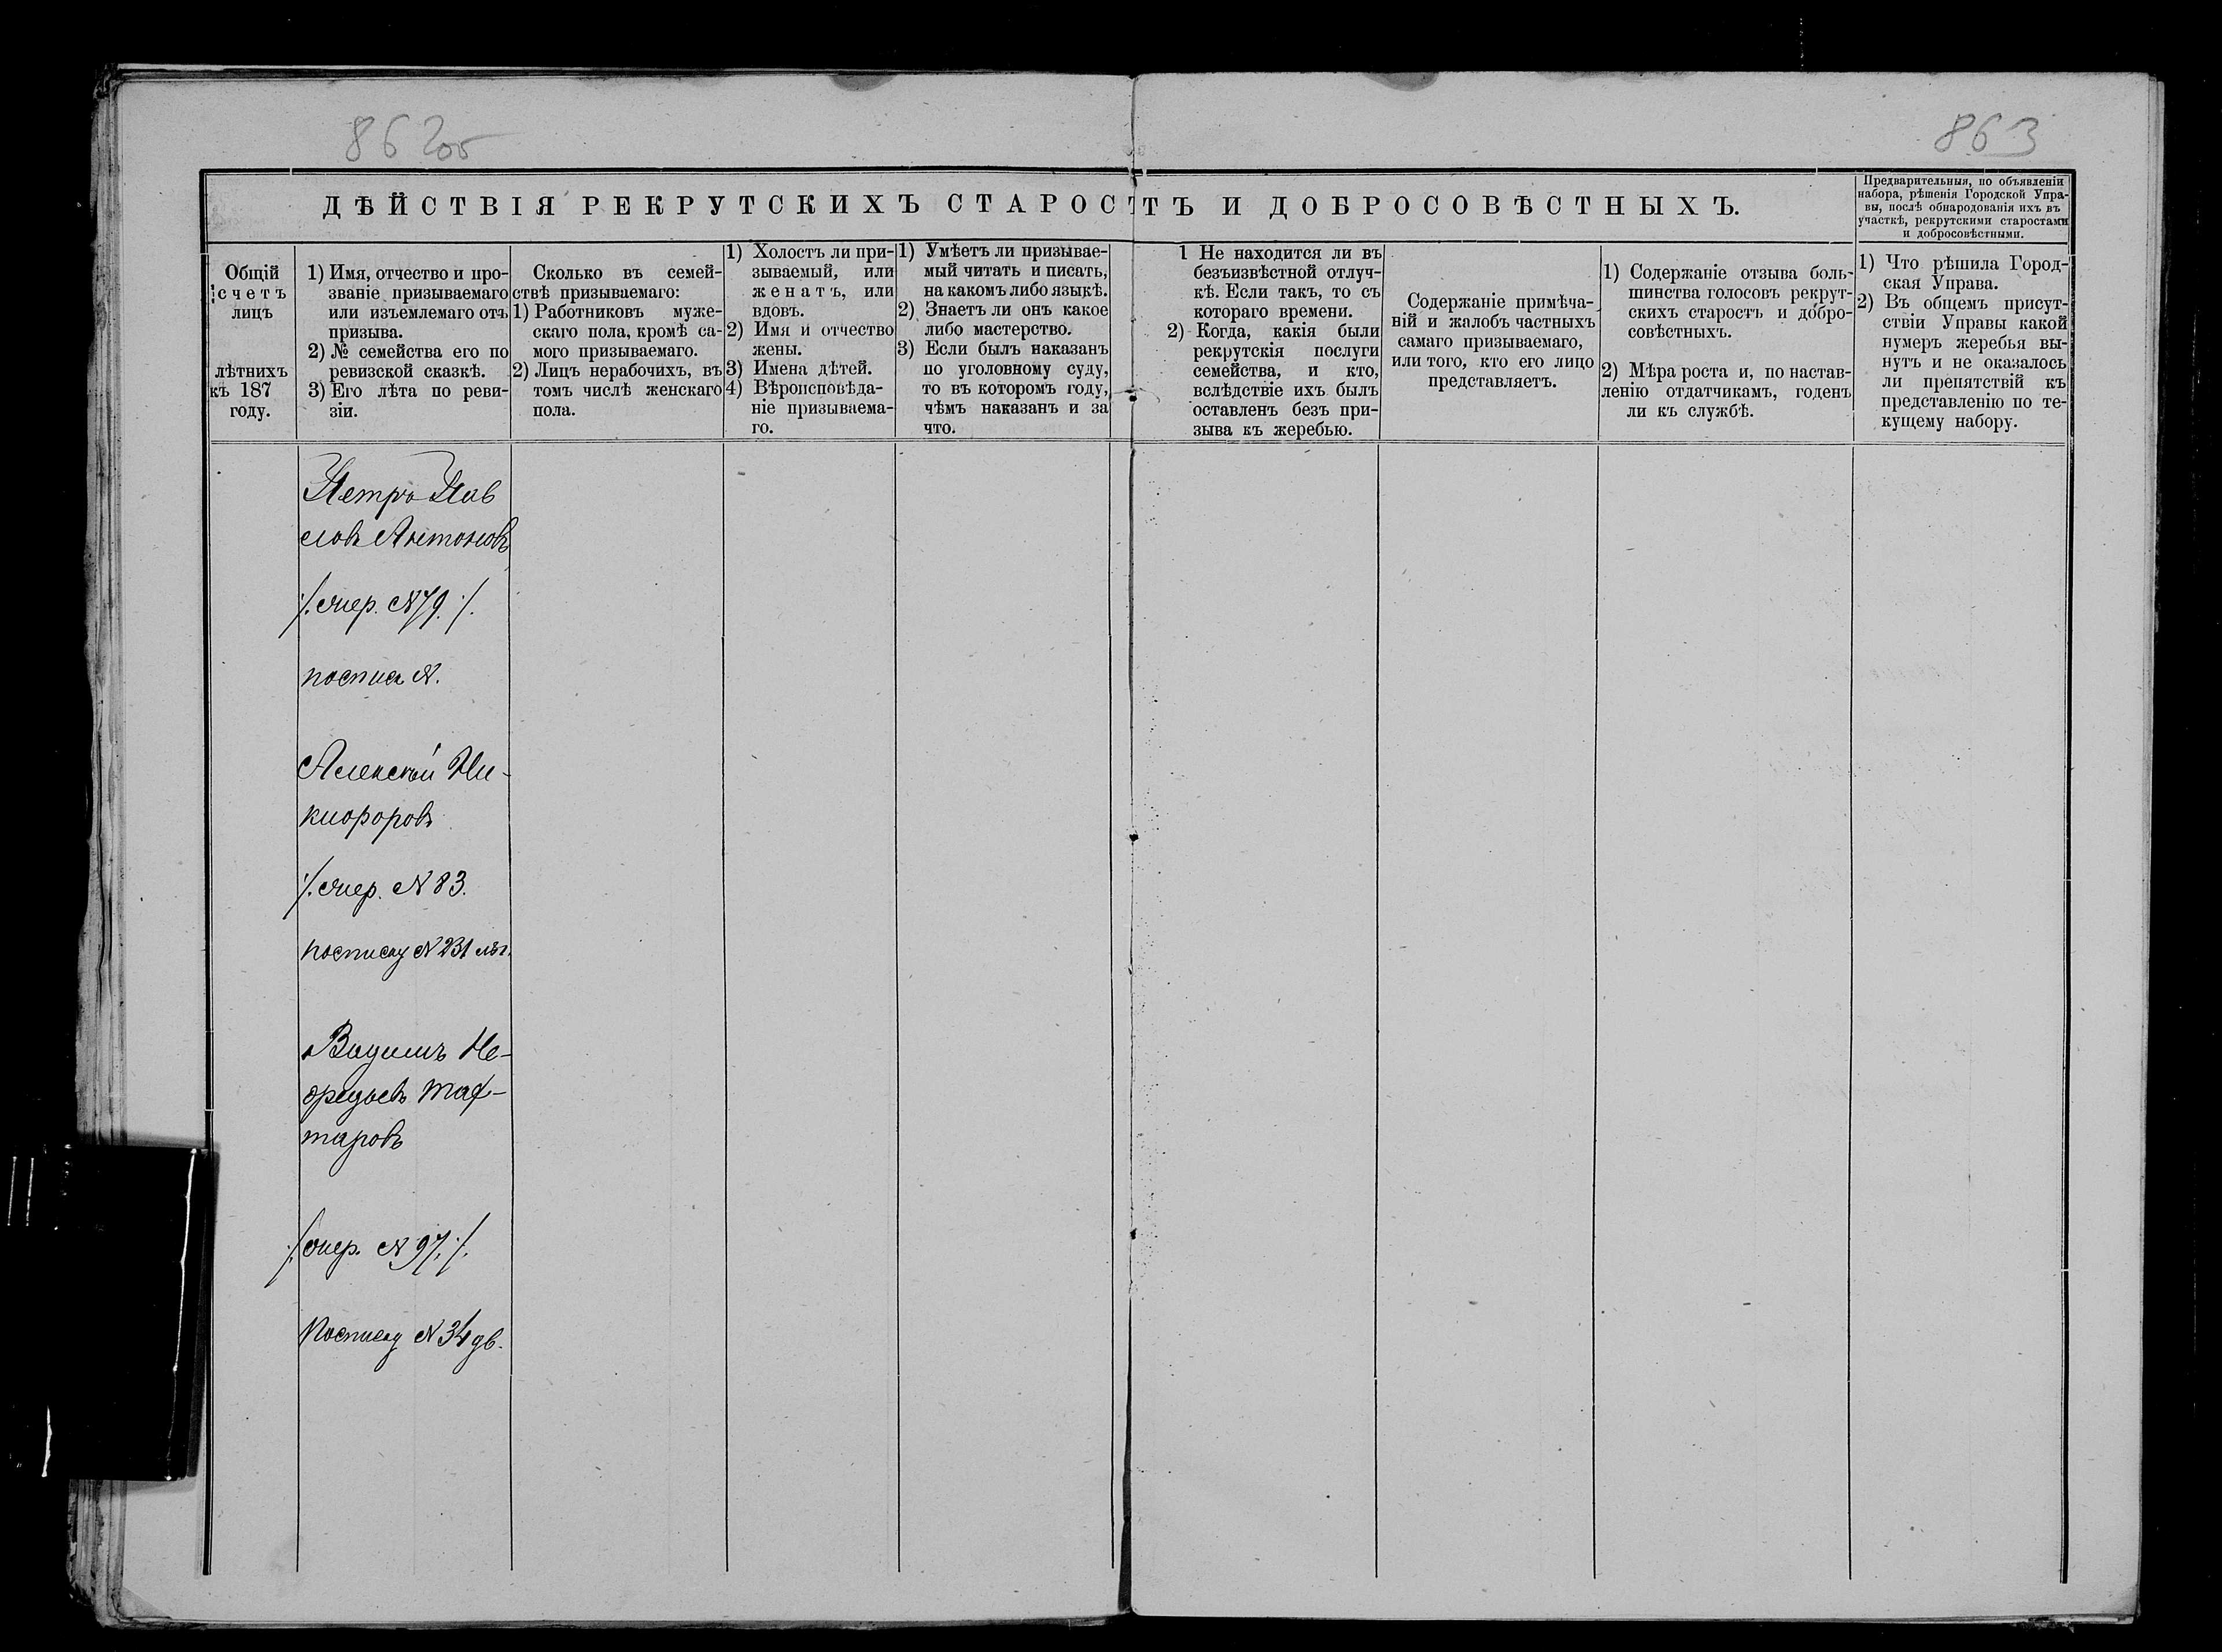 862об
863
ДѢЙСТВІЯ РЕКРУТСКИХЪ СТАРОСТЪ И ДОБРОСОВѢСТНЫХЪ.
Предварительныя, по объявленіи
набора, рѣшенія Городской Упра-
вы, послѣ обнародованія ихъ въ
участкѣ, рекрутскими старостами
и добросовѣстными.
Общій
счетъ
лицъ
лѣтнихъ
къ 187
году.
1) Имя, отчество и про-
званіе призываемаго
или изъемлемаго отъ
призыва.
2) № семейства его по
ревизской сказкѣ.
3) Его лѣта по реви-
зіи.
Сколько въ семей-
ствѣ призываемаго:
1) Работниковъ муже-
скаго пола, кромѣ са-
мого призываемаго.
2) Лицъ нерабочихъ, въ
томъ числѣ женскаго
пола.
1) Холостъ ли при-
зываемый, или
женатъ, или
вдовъ.
2) Имя и отчество
жены.
3) Имена дѣтей.
4) Вѣроисповѣда-
ніе призываема-
го.
1) Умѣетъ ли призывае-
мый читать и писать,
на какомъ либо языкѣ.
2) Знаетъ ли онъ какое
либо мастерство.
3) Если былъ наказанъ
по уголовному суду,
то въ которомъ году,
чѣмъ наказанъ и за
что.
1 Не находится ли въ
безъизвѣстной отлуч-
кѣ. Если такъ, то съ
котораго времени.
2) Когда, какія были
рекрутскія послуги
семейства, и кто,
вслѣдствіе ихъ былъ
оставленъ безъ при-
зыва къ жеребью.
Содержаніе примѣча-
ній и жалобъ частныхъ
самаго призываемаго,
или того, кто его лицо
представляетъ.
1) Содержаніе отзыва боль-
шинства голосовъ рекрут-
скихъ старостъ и добро-
совѣстныхъ.
2) Мѣра роста и, по настав-
ленію отдатчикамъ, годенъ
ли къ службѣ.
1) Что рѣшила Город-
ская Управа.
2) Въ общемъ присут-
ствіи Управы какой
нумеръ жеребья вы-
нутъ и не оказалось
ли препятствій къ
представленію по те-
кущему набору.
Петръ Пав
ловъ Антоновъ
№ 79 ./.
Алексѣй Ни-
кифоровъ
№ 83.
посписку № 231
Вадимъ Не-
таровъ
№ 97 ./.
Посписку № 34 дв.